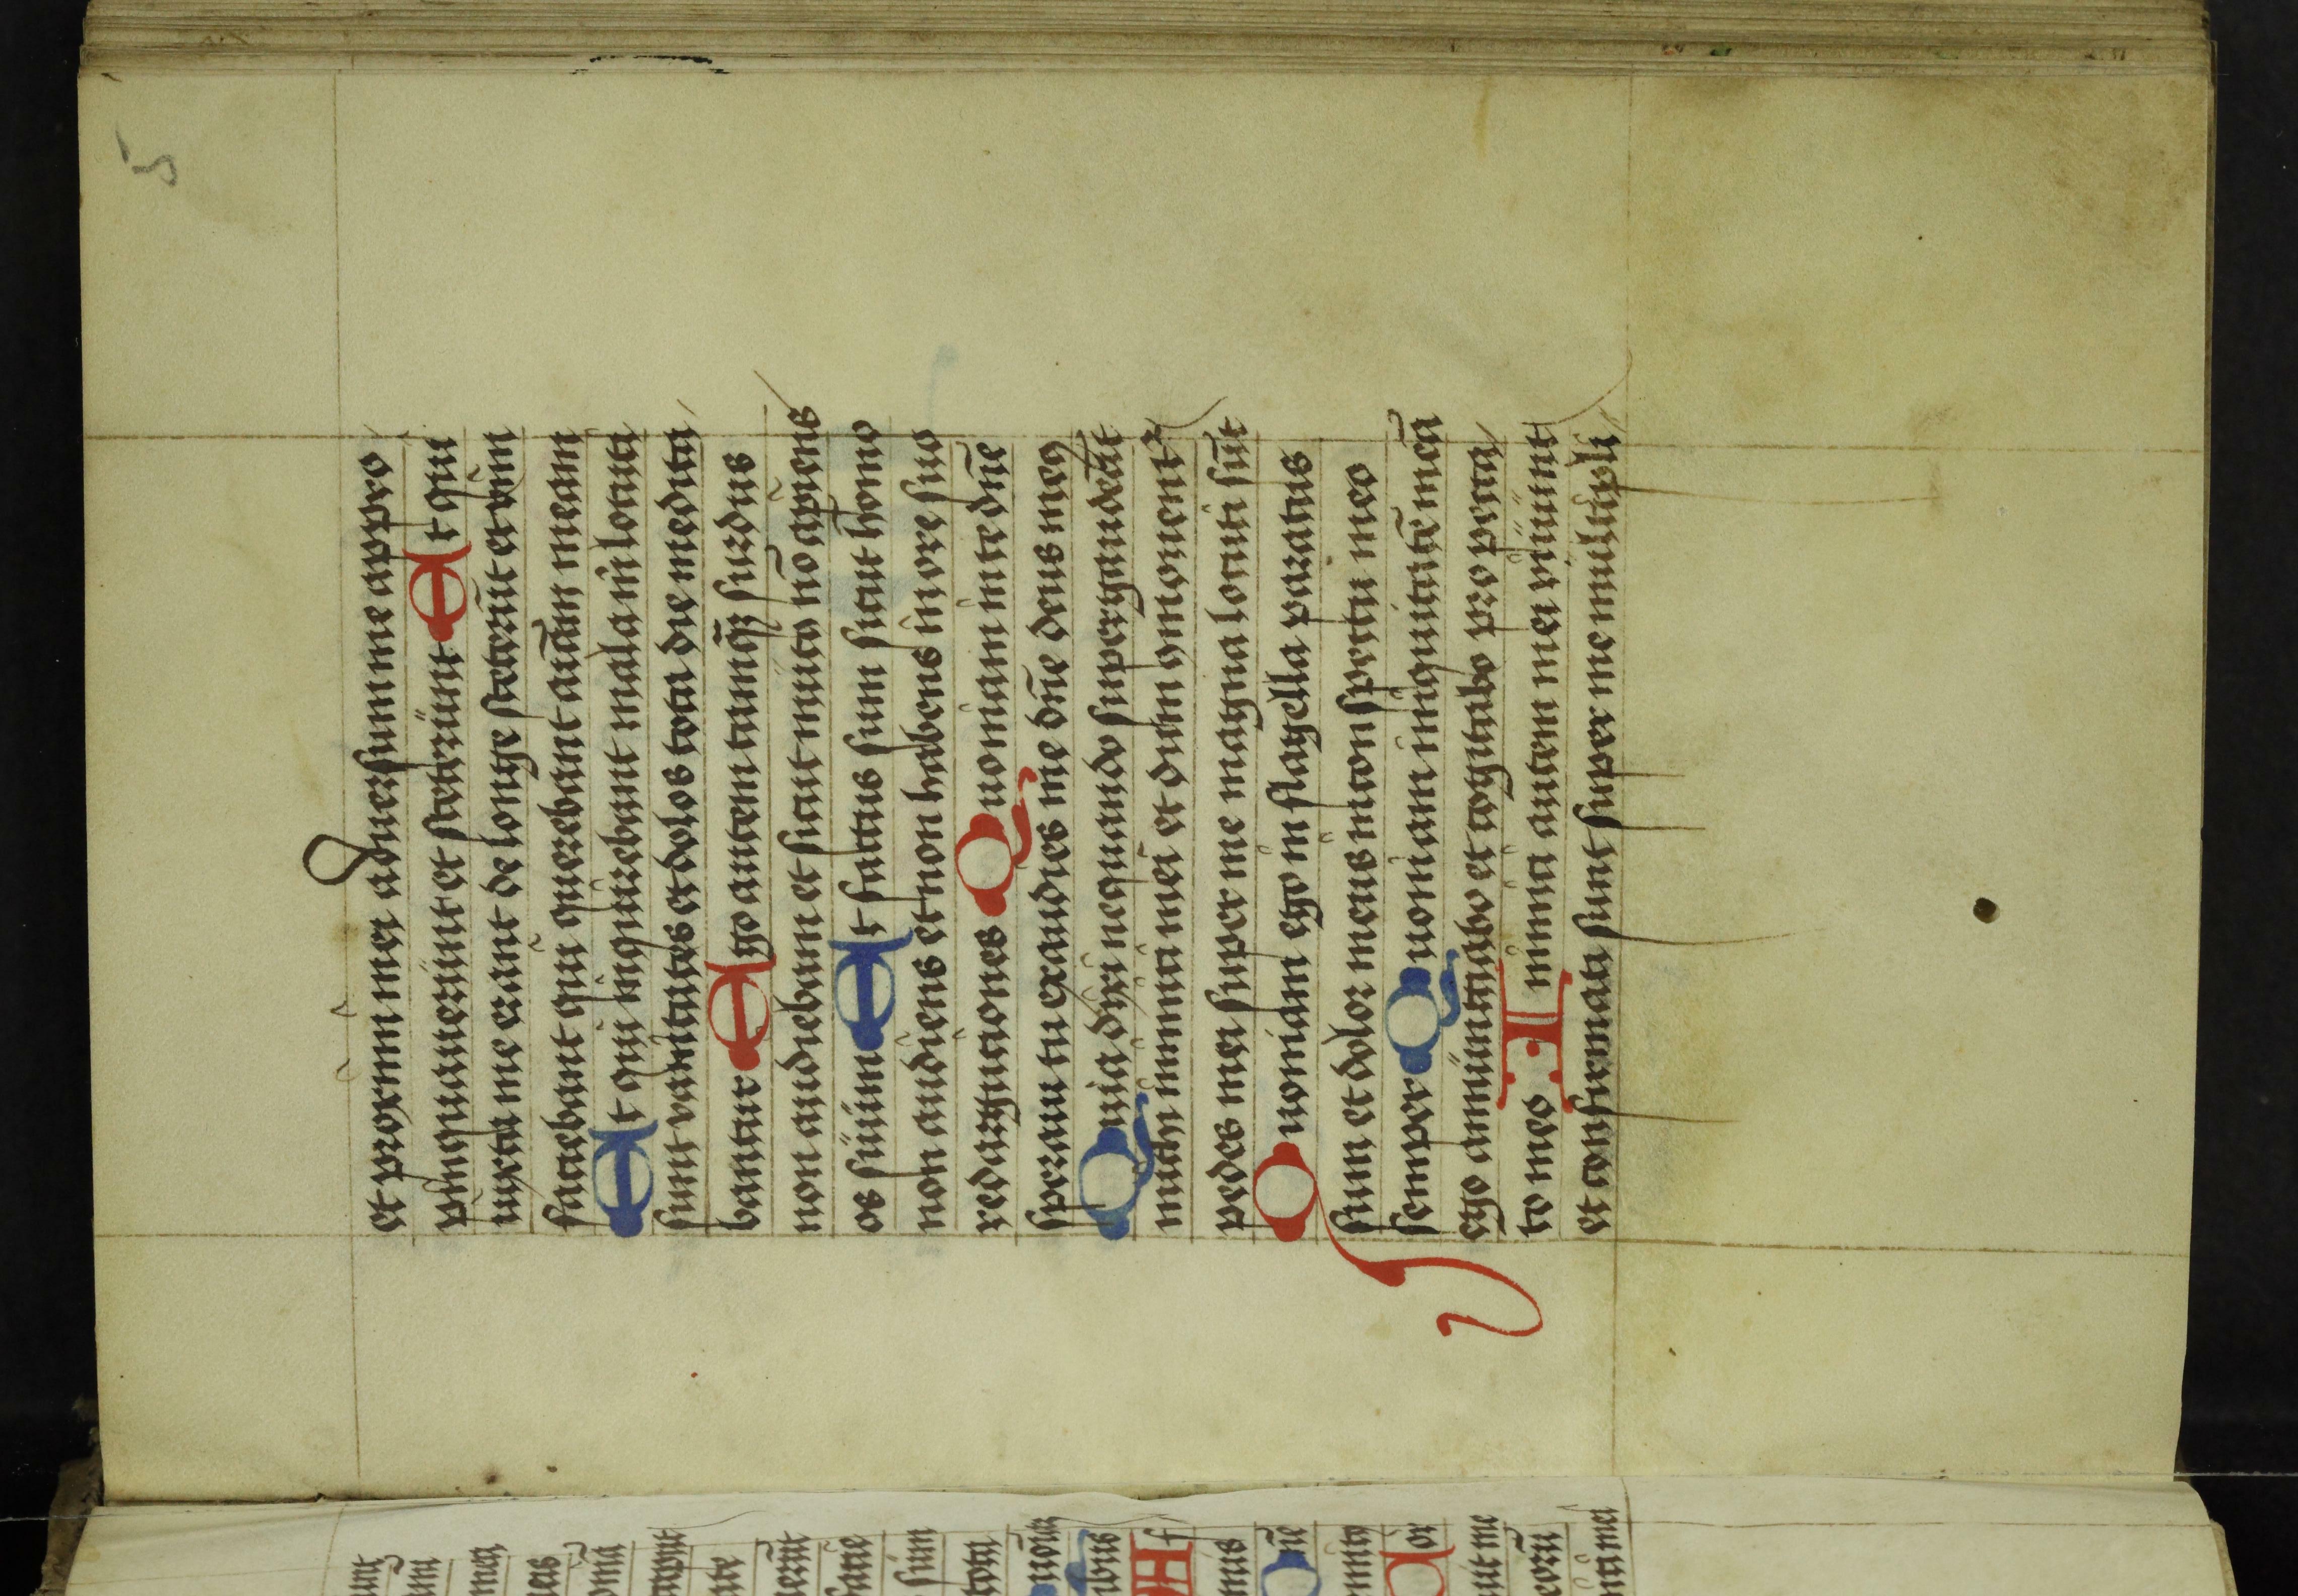 et proximi mei aduersum me appro
pinquauerunt et steterunt Et qui
iuxta me erant de longe steterūt et vim̄
faciebant qui querebant aīam meam
Et qui inquirebant mala mi locuti
sunt vanitates et dolos tota die medita
bantur Ego autem tamqꝫ surdus
non audiebam et sicut mutꝰ nō apiens
os suum Et factus sum sicut homo
non audiens et non habens in ore suo
redargutiones Quoniam in te dn̄e
speraui tu exaudies me dn̄e deus meꝰ
Quia dixi nequando supergaudeāt
michi inimici mei et dum ꝯmouent̃
pedes mei super me magna locuti sūt
Quoniam ego in flagella paratus
sum et dolor meus in conspectu meo
semper Quoniam iniquitatē meā
ego annuntiabo et cogitabo pro pecca
to meo Inimici autem mei viuunt
et confirmati sunt super me multipli